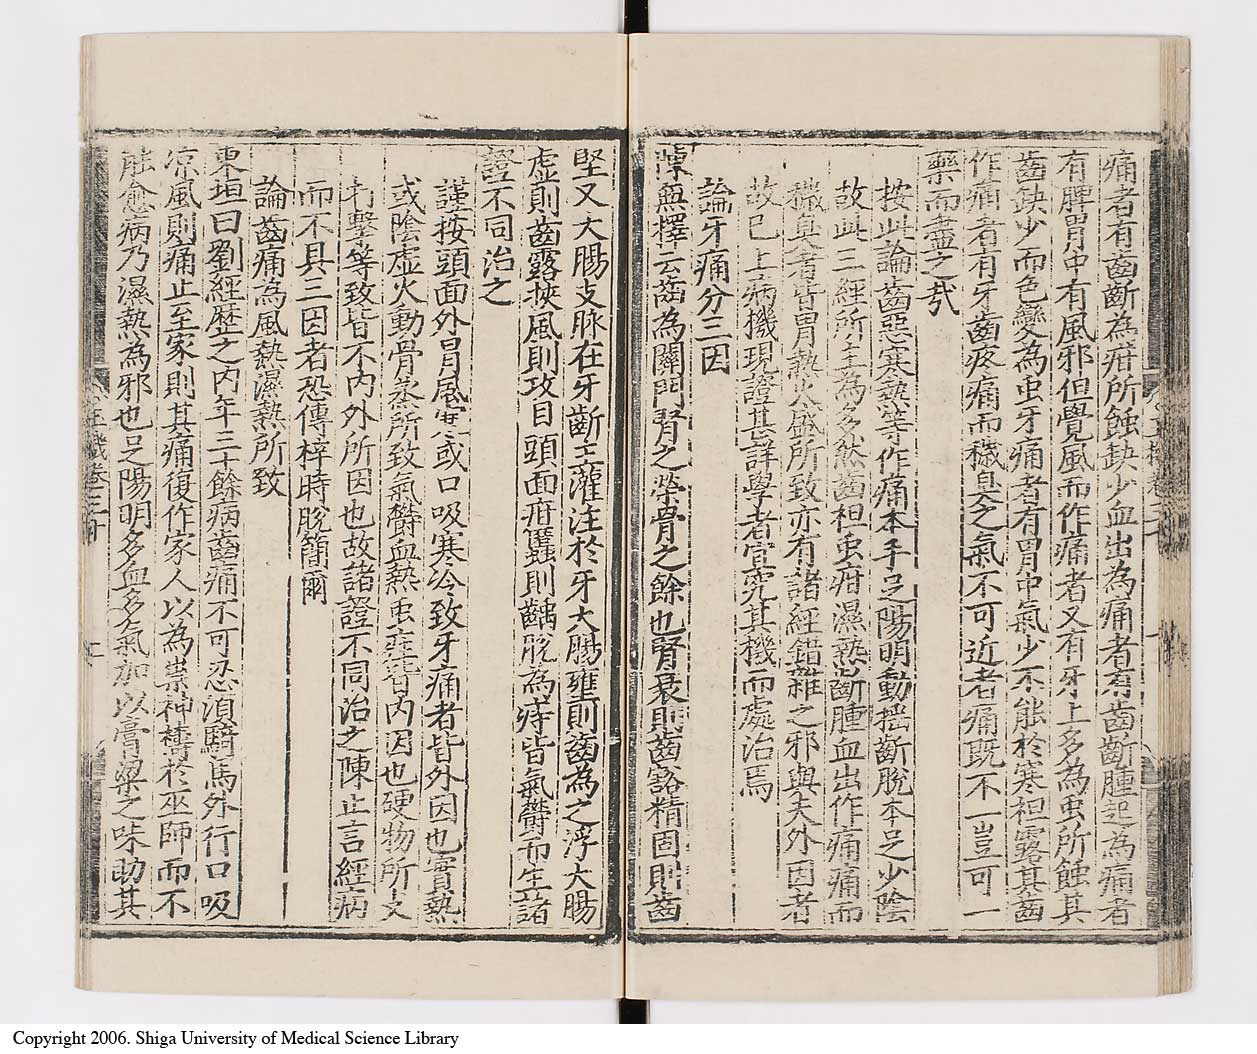 痛者有齒齗為疳所蝕缺少血出為痛者有齒齗腫起為痛者
有脾胃中有風邪但覺風而作痛者又有牙上多為虫所蝕其
齒缺少而色變為虫牙痛者有胃中氣少不能於寒袒露其齒
作痛者有牙齒疼痛而穢臭之氣不可近者痛既不一豈可一
藥而盡之哉
按此論齒惡寒熱等作痛本手足陽明動搖齗脫本足少陰
故此二經所主為多然齒袒虫疳濕熱齗腫血出作痛痛而
穢臭者皆胃熱火盛所致亦有諸經錯雜之邪與夫外因者
故巳上病機現證甚詳學者宜究其機而處治焉
論牙痛分三因
陳無擇云齒為關門腎之榮骨之餘也腎衰則齒豁精固則齒
堅又大腸支脉在牙齗主灌注於牙大腸壅則齒為之浮大腸
虛則齒露挾風則攻目頭面疳䘌則齲脫為痔皆氣欝而生諸
證不同治之
謹按頭面外冒風寒或口吸寒冷致牙痛者皆外因也實熱
或陰虛火動骨蒸所致氣欝血熱虫疰者內因也硬物所支
打擊等致皆不內外所因也故諸證不同治之陳止言經病
而不具三因者恐傳梓時脫簡爾
論齒痛為風熱濕熱所致
東垣曰劉經歷之內年三十餘病齒痛不可忍須騎馬外行口吸
凉風則痛止至家則其痛復作家人以為祟神禱於巫師而不
能愈病乃濕熱為邪也足陽明多血多氣加以膏粱之味助其